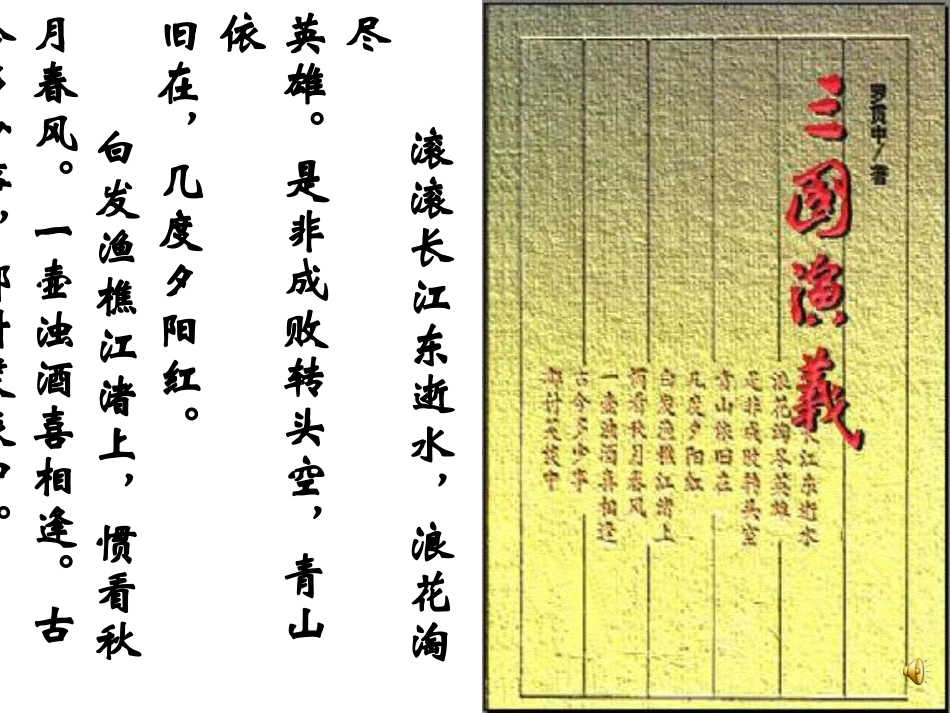 滚滚长江东逝水，浪花淘
尽
英雄。是非成败转头空，青山
依
旧在，几度夕阳红。
白发渔樵江渚上，惯看秋
月春风。一壶浊酒喜相逢。古
罗贯中/著
三國演義
江东逝水
浪花淘尽英雄
是非成败转头空
青山依旧在
几度夕阳红
白发渔樵江渚上
惯看秋月春风
一壶浊酒喜相逢
古今多少事
都付笑谈中